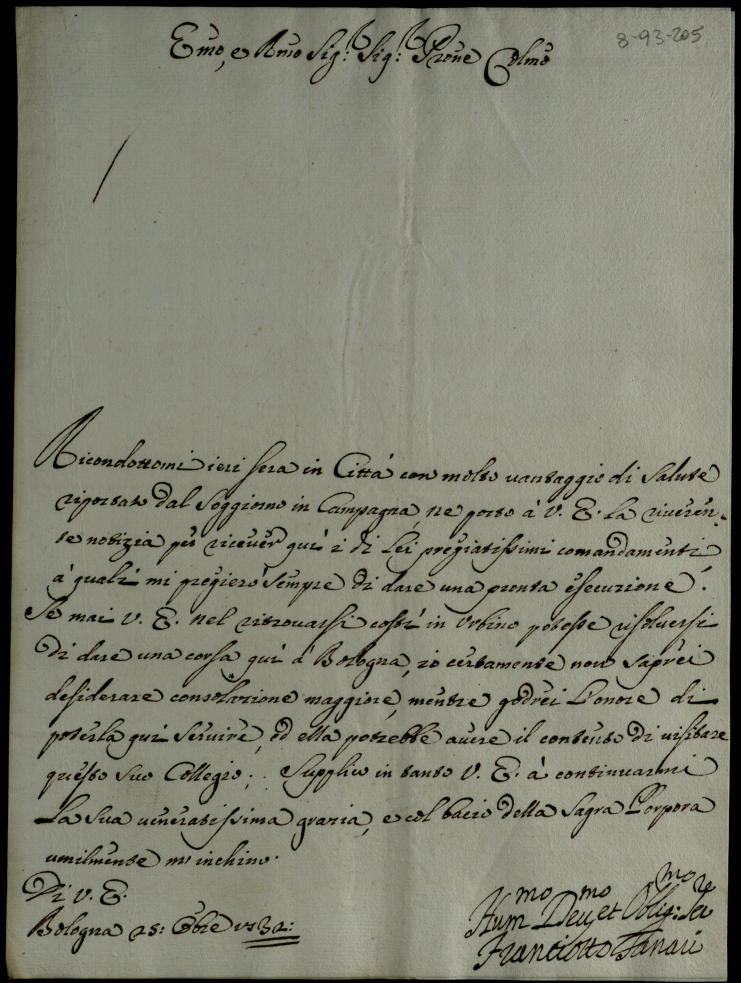 8-93-205
Emo, e Rmo Sig.r Sig.r Prone Colmo
Ricondottomi ieri sera in Città con molto vantaggio di Salute
riportato dal Soggiorno in Campagna, ne porto à V. E. la riveren-
te notizia per ricever quì i di Lei pregiatissimi comandamenti
à quali mi pregierò sempre di dare una pronta esecuzione.
Se mai V. E. nel ritrovarsi costì in Urbino potesse risolversi
di dare una corsa quì à Bologna, io certamente non saprei
desiderare consolazione maggiore, mentre godrei l'onore di
poterla quì Servire, ed ella potrebbe avere il contento di visitare
questo suo Collegio; Supplico in tanto V. E. à continuarmi
La Sua veneratissima grazia, e col bacio della Sagra Porpora
umilmente m'inchino.
Di V. E.
Bologna 28: Obre 1732:
Hummo Devmo et Obligmo Sre
Franciotto Tanari